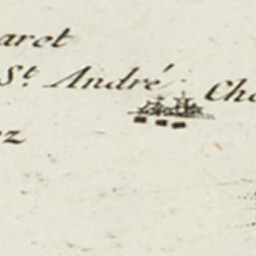 aret
St. André. Cha
oz